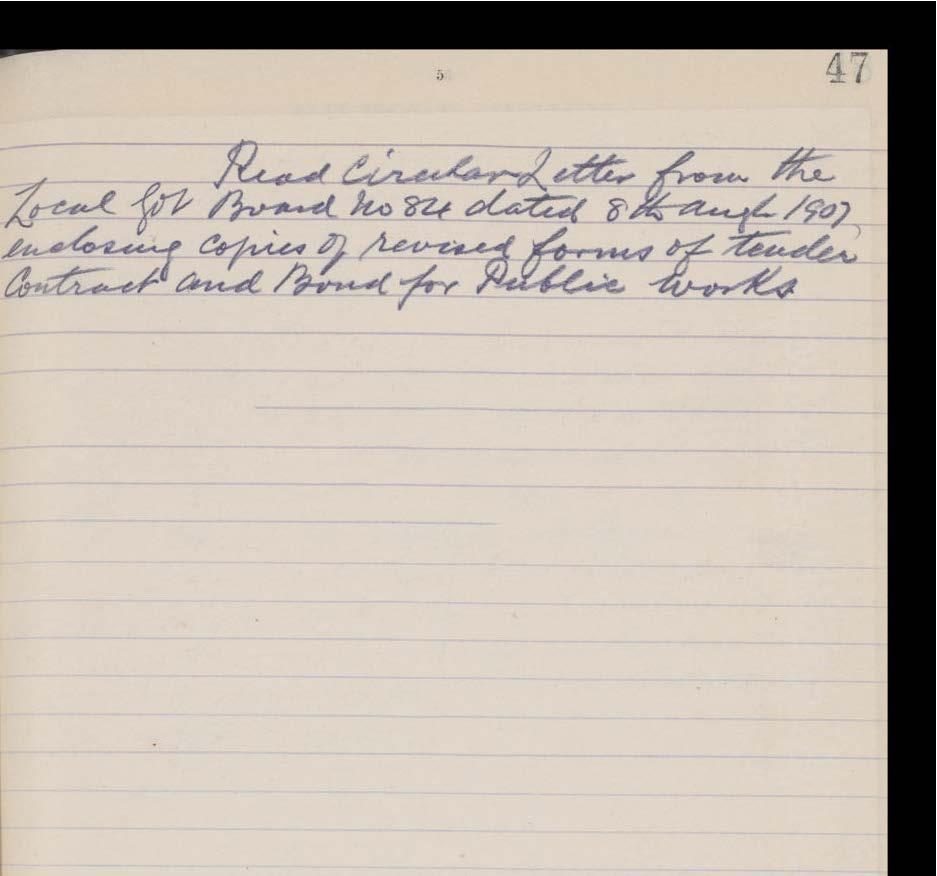 47
5
Read Circular Letter from the
Local Govt Board No 84 dated 8th Augt 1907
enclosing copies of revised forms of tender
Contract and Bond for Public Works